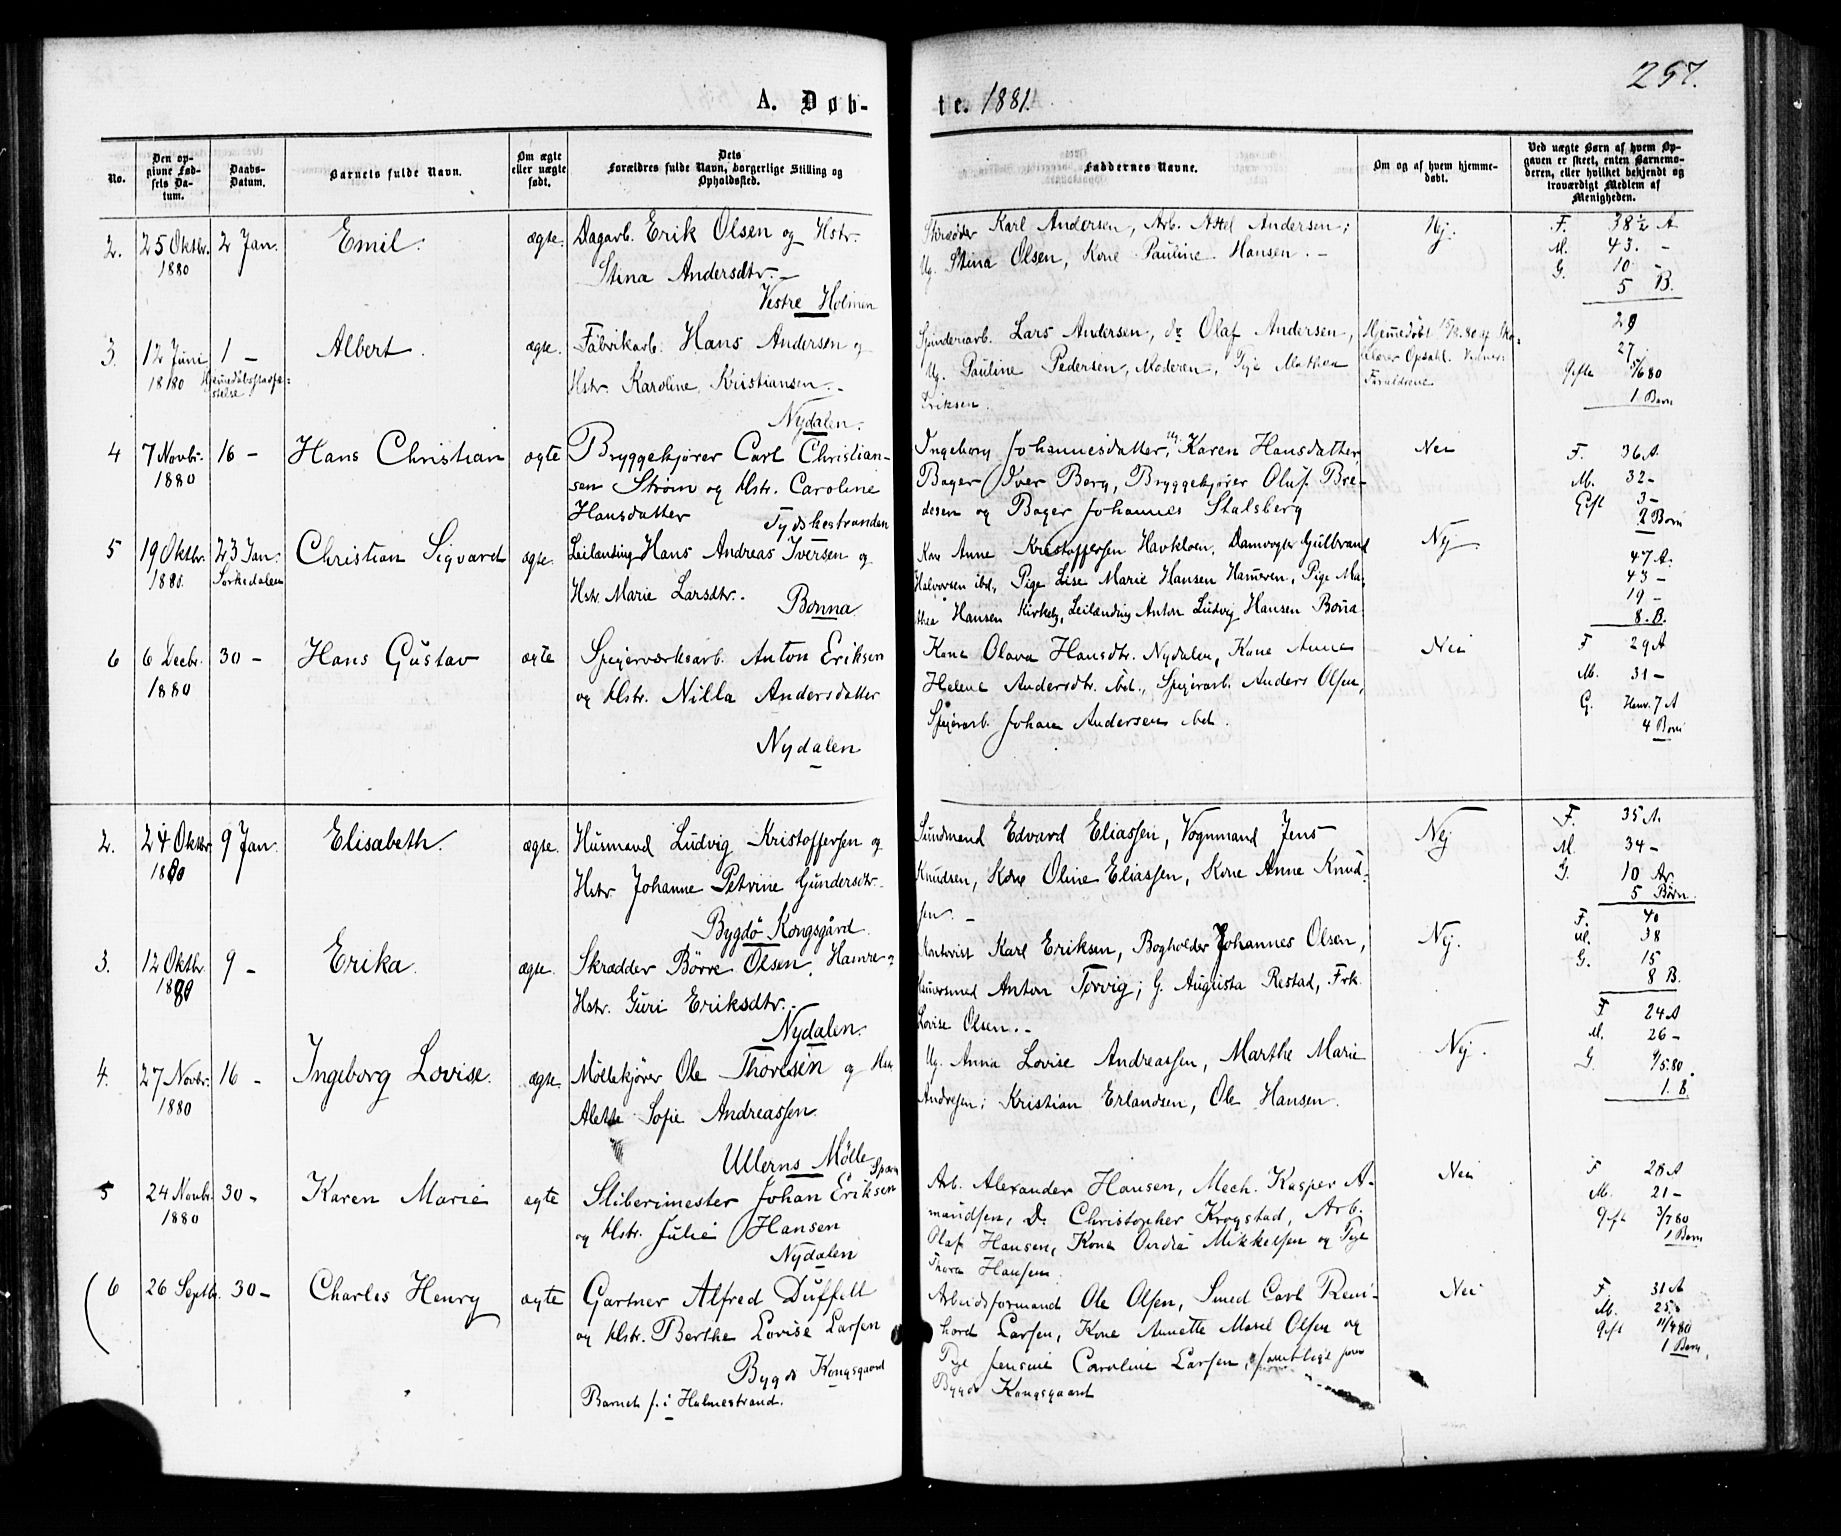 257.
A. Døb-
te. 1881.
No.
Den op-
givne Fød-
sels Da-
tum.
Daabs-
Datum.
Barnets fulde Navn.
Om ægte
eller uægte
født.
Dets
Forældres fulde Navn, borgerlige Stilling og
Opholdssted.
Faddernes Navne.
Om og af hvem hjemme-
døbt.
Ved uægte Børn af hvem Op-
gaven er skeet, enten Barnemo-
deren, eller hvilket bekjendt og
troværdigt Medlem af
Menigheden.
2. 25 Oktbr. 2 Jan. Emil. ægte. Dagarb. Erik Olsen og Hstr.
1880
Stina Andersdtr. –
Vestre Holmen
Skrædder Karl Andersen, Arb. Andersen;
Ug. Stina Olsen, Kone Pauline Hansen. –
Nej.
F. 38½ A
M. 43. –
G. 10 –
5 B.
3. 12 Juni 1 – Albert. ægte. Fabrikarb. Hans Andersen og
1880
Hstr. Karoline Kristiansen. –
Nydalen.
Spinderiarb. Lars Andersen, do Olaf Andersen,
Ug. Pauline Pedersen, Moderen, Pige Mathea
Eriksen.
Hjemmedøbt
Opsahl.
Forældrene
29
27
Gifte
1 Barn
4 7 Novbr. 16 – Hans Christian ægte Bryggekjører Carl Christian-
1880
sen Strøm og Hstr. Caroline
Hansdatter Tydskestranden
Ingeborg Johannesdatter, Ug. Karen Hansdatter,
Bager Iver Berg, Bryggekjører Oluf Bre-
desen og Bager Johannes Stalsberg
Nei
F. 36 A.
M. 32 –
Gift 3 –
2 Børn
5 19 Oktbr. 23 Jan. Christian Sigvard ægte. Leilænding Hans Andreas Iversen og
1880. Sørkedalen
Hstr. Marie Larsdtr. Bonna
Kone Anne Kristoffersen Havkloen, Damvogter Gulbrand
Halvorsen ibd., Pige Lise Marie Hansen Hammeren, Pige Ma-
thea Hansen Kirkeby, Leilænding Anton Ludvig Hansen Bonna
Nej.
47 A.
43 –
19 –
8. B.
6 6 Decbr. 30 – Hans Gustav ægte Spigerværksarb. Anton Eriksen
1880
og Hstr. Nilla Andersdatter
Nydalen
Kone Olava Hansdtr. Nydalen, Kone Anne
Helene Andersdtr. ibd., Spigerarb. Anders Olsen,
Spigerarb. Johan Andersen ibd.
Nei
F 29 A
M. 31 –
G. 7 A
4 Børn
2. 24 Oktbr 9 Jan. Elisabeth. ægte. Husmand Ludvig Kristoffersen og
1880
Hstr Johanne Petvine Gundersdtr.
Bygdö Kongsgård.
Sundmand Edvard Eliassen, Vognmand Jens
Knudsen, Kone Oline Eliassen, Kone Anne Knud-
sen. –
Nej
F. 35 A.
M. 34 –
G. 10 Ar.
5 Børn.
3. 12 Oktbr. 9 – Erika. ægte. Skrædder Börre Olsen, Hamre og
1880
Hstr. Guri Eriksdtr. –
Nydalen.
Kontorist Karl Eriksen, Bogholder Johannes Olsen,
Anton Torvig; G. Augusta Restad, Frk
Lovise Olsen. –
Nej.
F. 40
M. 38
G. 15
8 B.
4. 27 Novbr. 16 – Ingeborg Lovise. ægte. Möllekjörer Ole Thoresen og Hstr
1880
Alette Sofie Andreassen.
Ullerns Mölle
Ug. Anna Lovise Andreassen, Marthe Marie
Andresen; Kristian Erlandsen, Ole Hansen.
Nej.
F 24 A
M. 26 –
G. 5.80
1. B.
5 24 Novbr. 30 – Karen Marie ægte Sliberimester Johan Eriksen
1880
og Hstr. Julie Hansen
Nydalen
Arb. Alexander Hansen, Mech. Kasper A-
mundsen, Do. Christopher Krogstad, Arb.
Olaf Hansen, Kone Andrea Mikkelsen og Pige
Thora Hansen.
Nei
F 28 A
M. 21 –
Gift 3/7 80
1 Barn
6 26 Septbr. 30 – Charles Henry ægte Gartner Alfred Duffett
og Hstr. Berthe Lovise Larsen
Bygdø Kongsgaard
Barnet f. i Holmestrand.
Arbeidsformand Ole Olsen, Smed Carl Rein-
hard Larsen, Kone Annette Marie Olsen og
Pige Jensine Caroline Larsen, samtlige paa
Bygdø Kongsgaard
Nei
F. 31 A
M. 25
Gift 11/4 80
1 Barn.